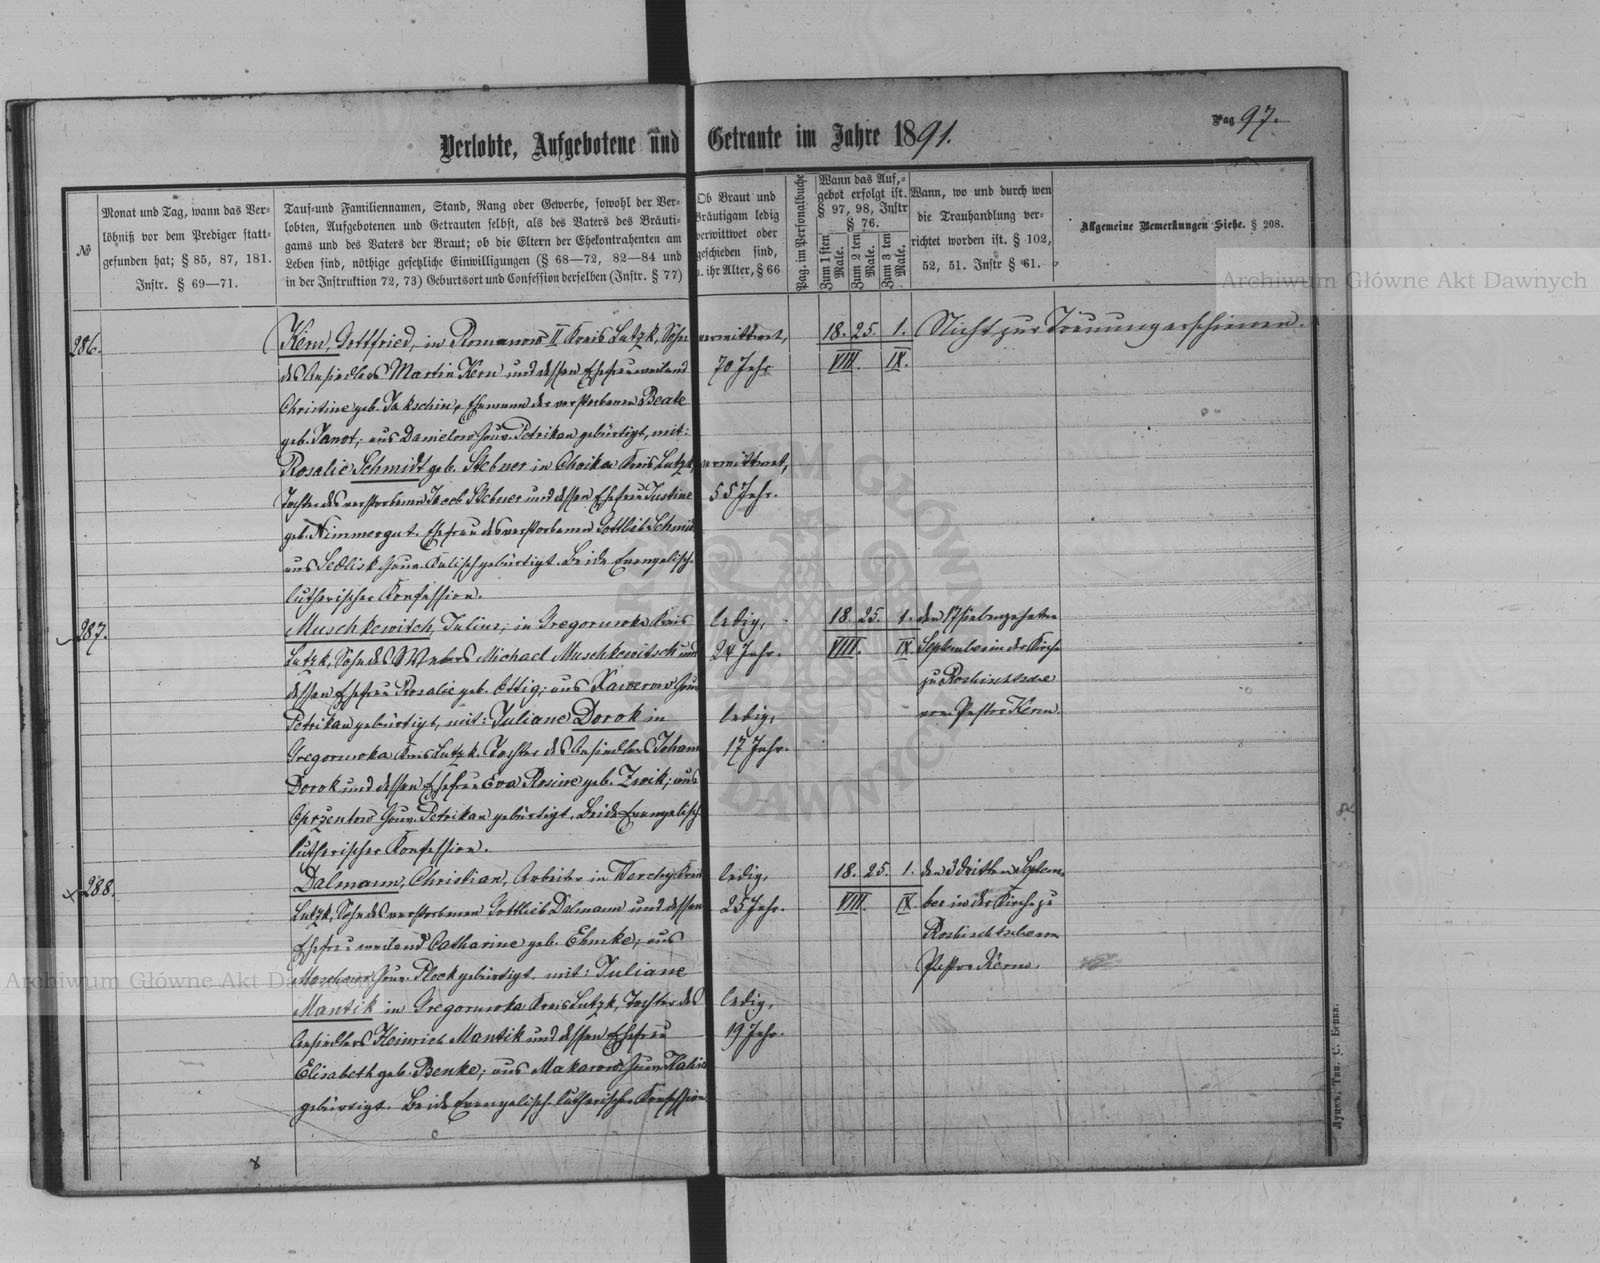 Pag 97.
Verlobte, Aufgebotene und Getraute im Jahre 1891.
№
Monat und Tag, wann das Ver-
löbniß vor dem Prediger statt-
gefunden hat; § 85, 87, 181.
Instr. § 69—71.
Tauf- und Familiennamen, Stand, Rang oder Gewerbe, sowohl der Ver-
lobten, Aufgebotenen und Getrauten selbst, als des Vaters des Bräuti-
gams und des Vaters der Braut; ob die Eltern der Ehekontrahenten am
Leben sind, nöthige gesetzliche Einwilligungen (§ 68—72, 82—84 und
in der Instruktion 72, 73) Geburtsort und Confession derselben (Instr. § 77)
Ob Braut und
Bräutigam ledig
verwittwet oder
geschieden sind,
u. ihr Alter, § 66
Pag. im Personalbuche
Wann das Auf-
gebot erfolgt ist.
§ 97, 98, Instr
§ 76.
Zum 1 sten Male.
Zum 2 ten Male.
Zum 3 ten Male.
Wann, wo und durch wen
die Trauhandlung ver-
richtet worden ist. § 102,
52, 51. Instr § 61.
Allgemeine Bemerkungen Siehe. § 208.
286.
Kern, Gottfried, in Romanow II Kreis Lutzk, Sohn
des Ansiedlers Martin Kern und dessen Ehefrau weiland
Christine geb. Jakschin, Ehemann der verstorbenen Beate
geb. Janot; aus Danielow Gouv. Petrikau gebürtigt, mit:
Rosalie Schmidt geb. Stebner in Choika Kreis Lutzk,
Tochter des verstorbenen Jacob Stebner und dessen Ehefrau Justine
geb. Nimmergut. Ehefrau des verstorbenen Gottlieb Schmidt
aus Sedlisk Gouv. Kalisch gebürtigt. Beide Evangelisch-
lutherischer Konfession.
verwittwet,
70 Jahr
verwittwet,
55 Jahr.
18. 25. 1.
VIII. IX.
Nicht zur Trauung erschienen.
287.
Muschkewitsch, Julius, in Gregorowka Kreis
Lutzk, Sohn des Webers Michael Muschkewitsch und
dessen Ehefrau Rosalie geb. Ottig; aus Xawerow Gouv
Petrikau gebürtigt, mit: Juliane Dorok in
Gregorowka Kreis Lutzk, Tochter des Ansiedlers Johann
Dorok und dessen Ehefrau Eva Rosine geb. Zwik; aus
Gouv. Petrikau gebürtigt. Beide Evangelisch-
lutherischer Konfession.
ledig,
24 Jahr.
ledig,
17 Jahr.
18. 25. 1.
VIII. IX.
den 17 siebenzehnten
September in der Kirche
zu Roshischtsche
von Pastor Kern.
288.
Dalmann, Christian, Arbeiter in Werchy Kreis
Lutzk, Sohn des verstorbenen Gottlieb Dalmann und dessen
Ehefrau weiland Catharine geb. Ehmke; aus
Gouv. Plock gebürtigt. mit: Juliane
Mantik in Gregorowka Kreis Lutzk, Tochter des
Ansiedlers Heinrich Mantik und dessen Ehefrau
Elisabeth geb. Benke; aus Makarow Gouv. Kalisch
gebürtigt. Beide Evangelisch-lutherischer Konfession
ledig,
25 Jahr.
ledig,
19 Jahr.
18. 25. 1.
VIII. IX.
den 3 dritten Septem-
ber in der Kirche zu
Roshischtsche von
Pastor Kern.
Луцкъ, Тип. С. Бейка.
Archiwum Główne Akt Dawnych
Archiwum Główne Akt Dawnych